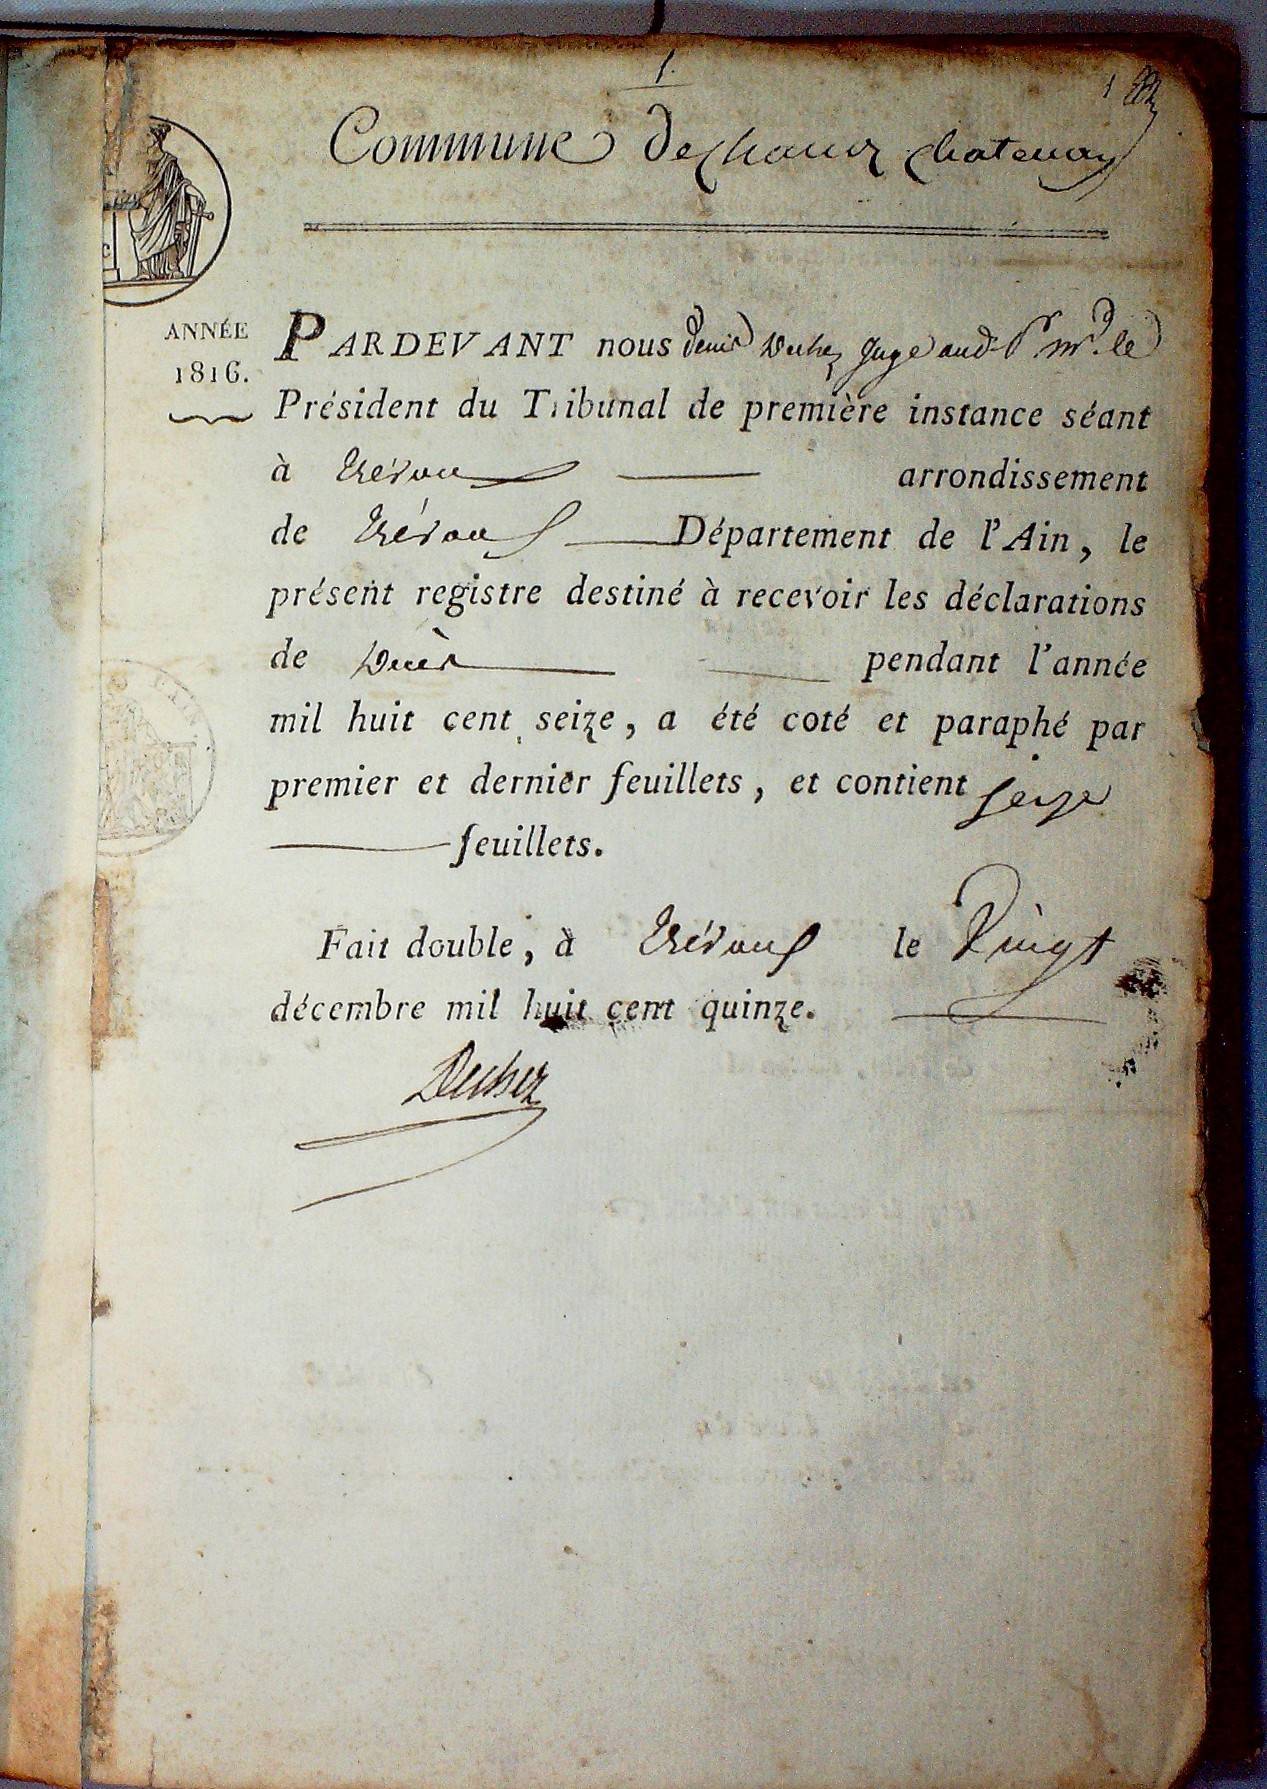 1.
1
Commune de chanoz chatenay
ANNÉE
1816.
PARDEVANT nous denis Duhez juge aud. Pr mr. le
Président du Tribunal de première instance séant
à trévoux arrondissement
de trévoux Département de l'Ain, le
présent registre destiné à recevoir les déclarations
de Décès pendant l'année
mil huit cent seize, a été coté et paraphé par
premier et dernier feuillets, et contient seize
feuillets.
Fait double, à trévoux le Vingt
décembre mil huit cent quinze.